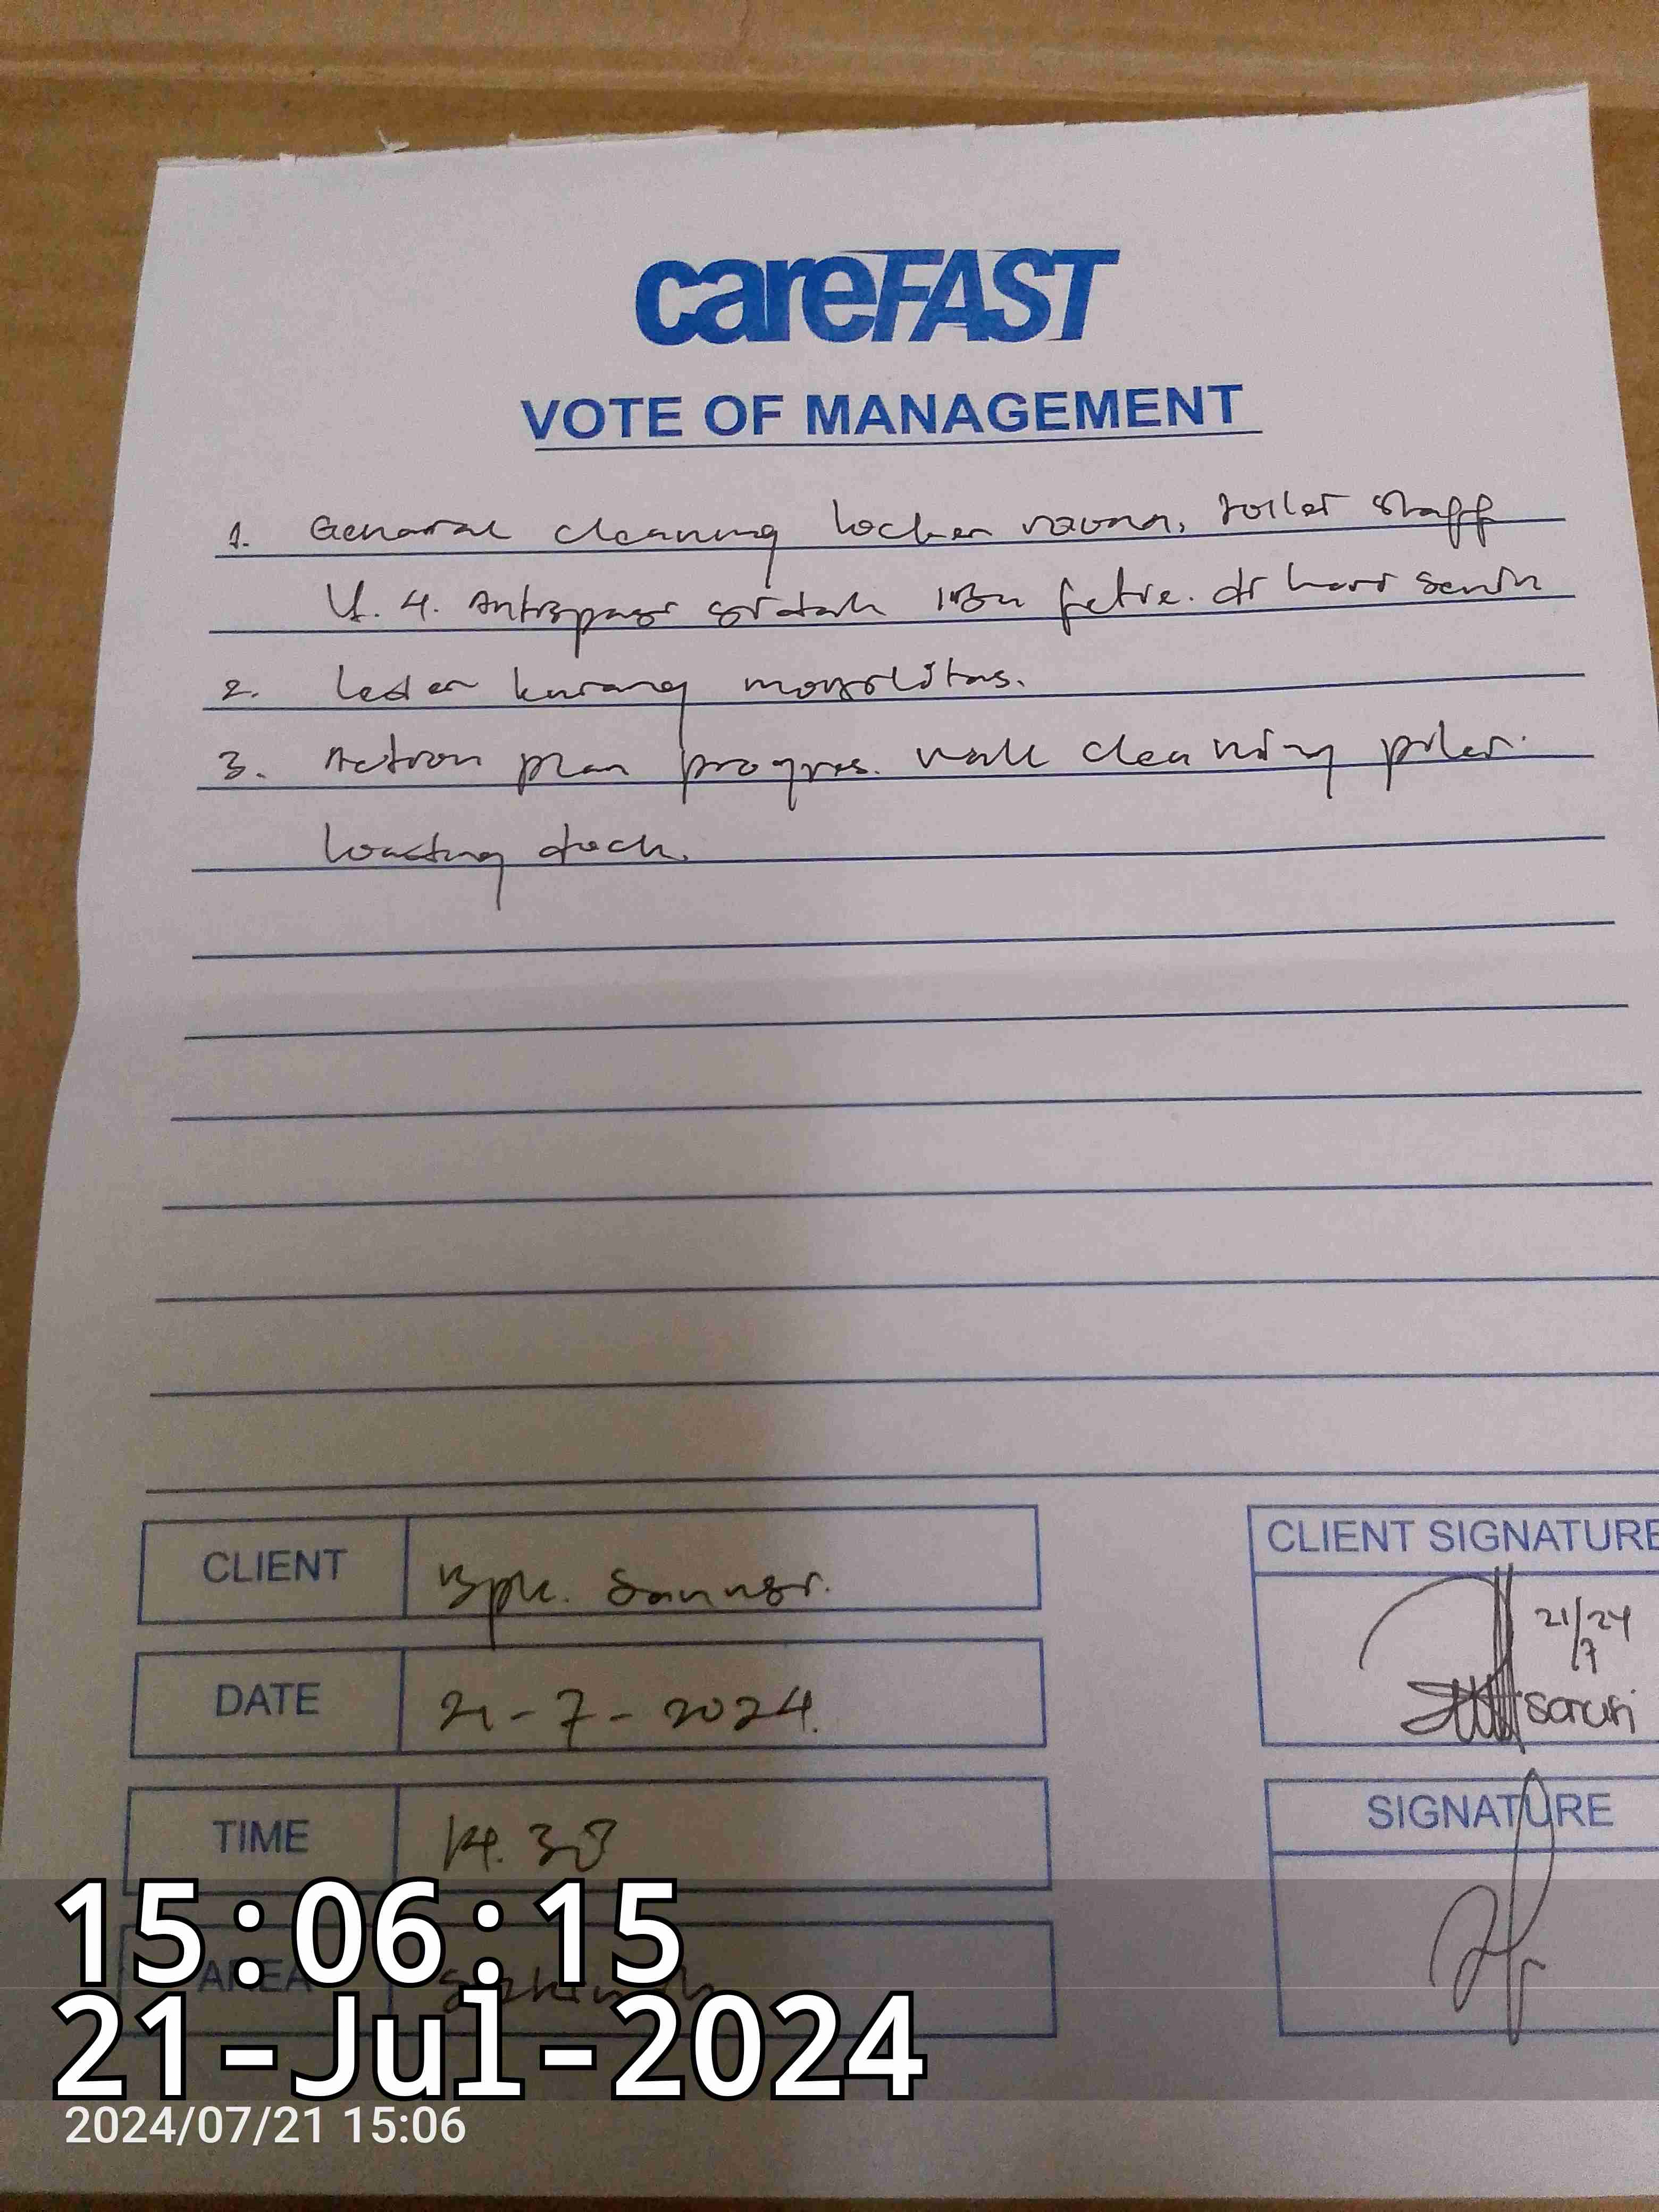 careFAST
VOTE OF MANAGEMENT
1. General cleaning locker room, toilet staff
U. 4. Antisipasi sidak Ibu fetre. di hari senin
2. leder kurang
3. Action plan progres. wall cleaning pilar.
loading dock.
CLIENT
Bpk. Sanusi.
DATE
21-7-2024.
TIME
14.30
AREA
CLIENT SIGNATURE
21/24
7
sanusi
SIGNATURE
15:06:15
21-Jul-2024
2024/07/21 15:06